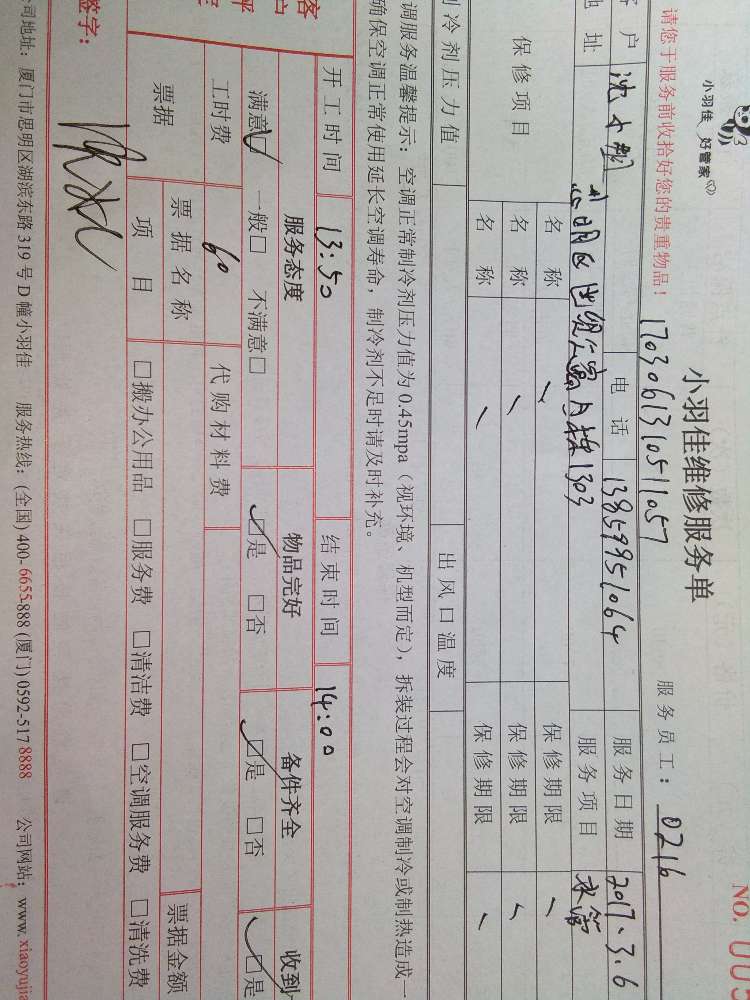 小羽佳 好管家
小羽佳维修服务单
NO. 005
请您于服务前收拾好您的贵重物品！
1703061310511057
服务员工：0216
户
电话
13859951064
服务日期
2017.3.6
地址
思明区
1303
服务项目
水管
保修项目
名称
保修期限
名称
保修期限
名称
保修期限
制冷剂压力值
出风口温度
调服务温馨提示：空调正常制冷剂压力值为0.45mpa（视环境、机型而定），拆装过程会对空调制冷或制热造成一
确保空调正常使用延长空调寿命，制冷剂不足时请及时补充。
开工时间
13:50
结束时间
14:00
服务态度
物品完好
备件齐全
收到
满意□ 一般□ 不满意□
□是 □否
□是 □否
□是
工时费
60
代购材料费
票据
票据名称
票据金额
项目
□搬办公用品 □服务费 □清洁费 □空调服务费 □清洗费
签字：
公司地址：厦门市思明区湖滨东路319号D幢小羽佳 服务热线：(全国) 400-6655-888 (厦门) 0592-517 8888 公司网站：www.xiaoyujia